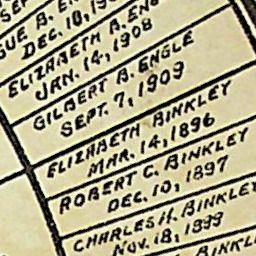 SUE B. EN
DEC. 10, 19
ELIZABETH A. ENG
JAN. 14, 1908
GILBERT B. ENGLE
SEPT. 7, 1909
ELIZABETH BINKLEY
MAR. 14, 1896
ROBERT C. BINKLEY
DEC. 10, 1897
CHARLES H. BINKLEY
NOV. 18, 1899
BINKL